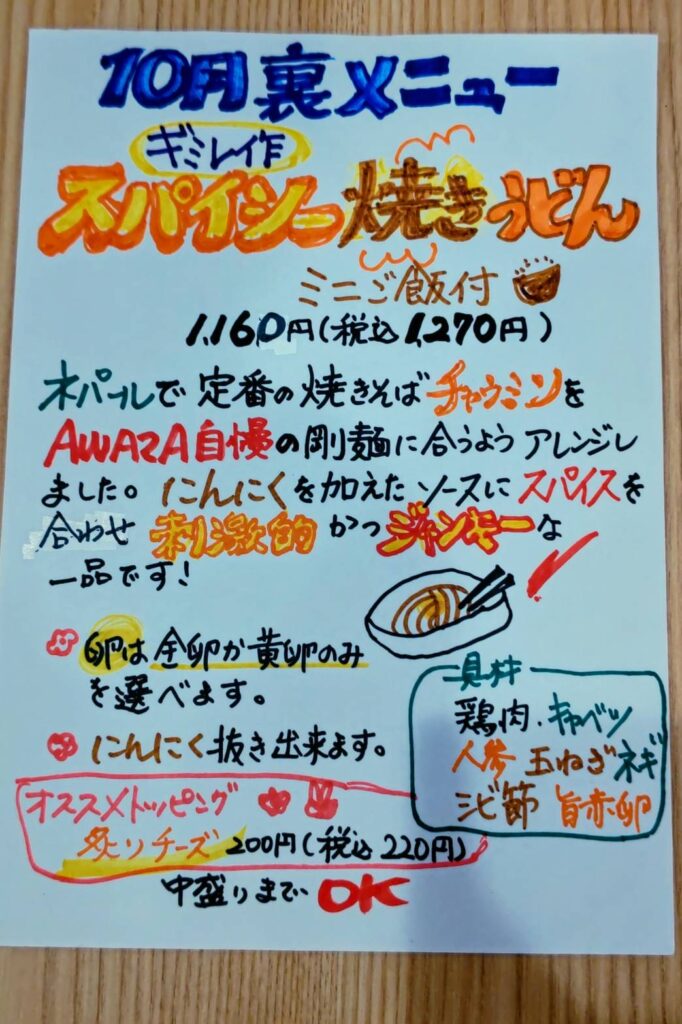 10月裏メニュー
ギミレイ作
スパイシー焼きうどん
ミニご飯付
1,160円(税込1,270円)
ネパールで定番の焼きそばチャウミンを
AWAZA自慢の剛麺に合うようアレンジし
ました。にんにくを加えたソースにスパイスを
合わせ 刺激的 かつ ジャンキーな
一品です!
卵は全卵か黄卵のみ
を選べます。
にんにく抜き出来ます。
具材
鶏肉・キャベツ
人参 玉ねぎ ネギ
シビ節 旨赤卵
オススメトッピング
炙りチーズ 200円(税込220円)
中盛りまでOK